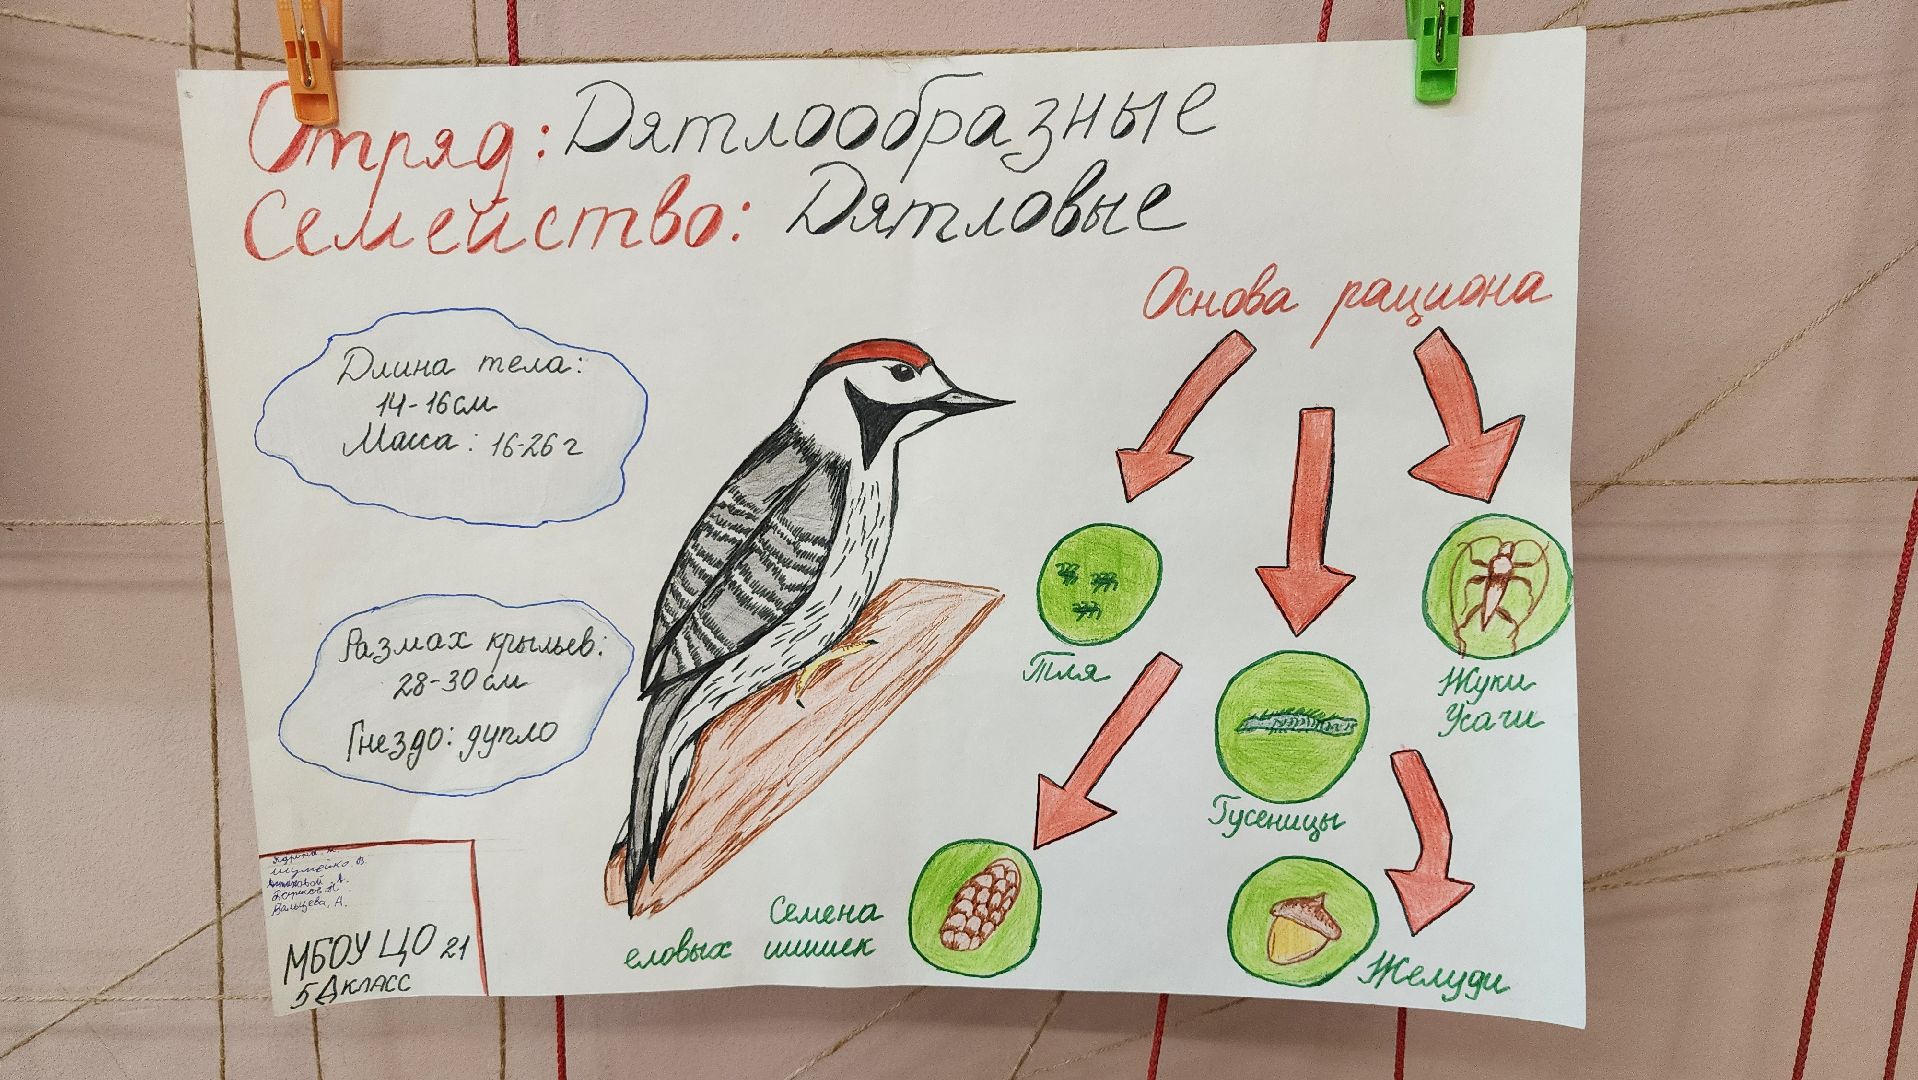 Отряд: Дятлообразные
Семейство: Дятловые
Основа рациона
Длина тела:
14-16 см
Масса: 16-26 г
Размах крыльев:
28-30 см
Гнездо: дупло
Тля
Жуки
Усачи
Гусеницы
Семена
еловых шишек
Желуди
Шумейко В.
Вальцева, А.
МБОУ ЦО 21
5А класс